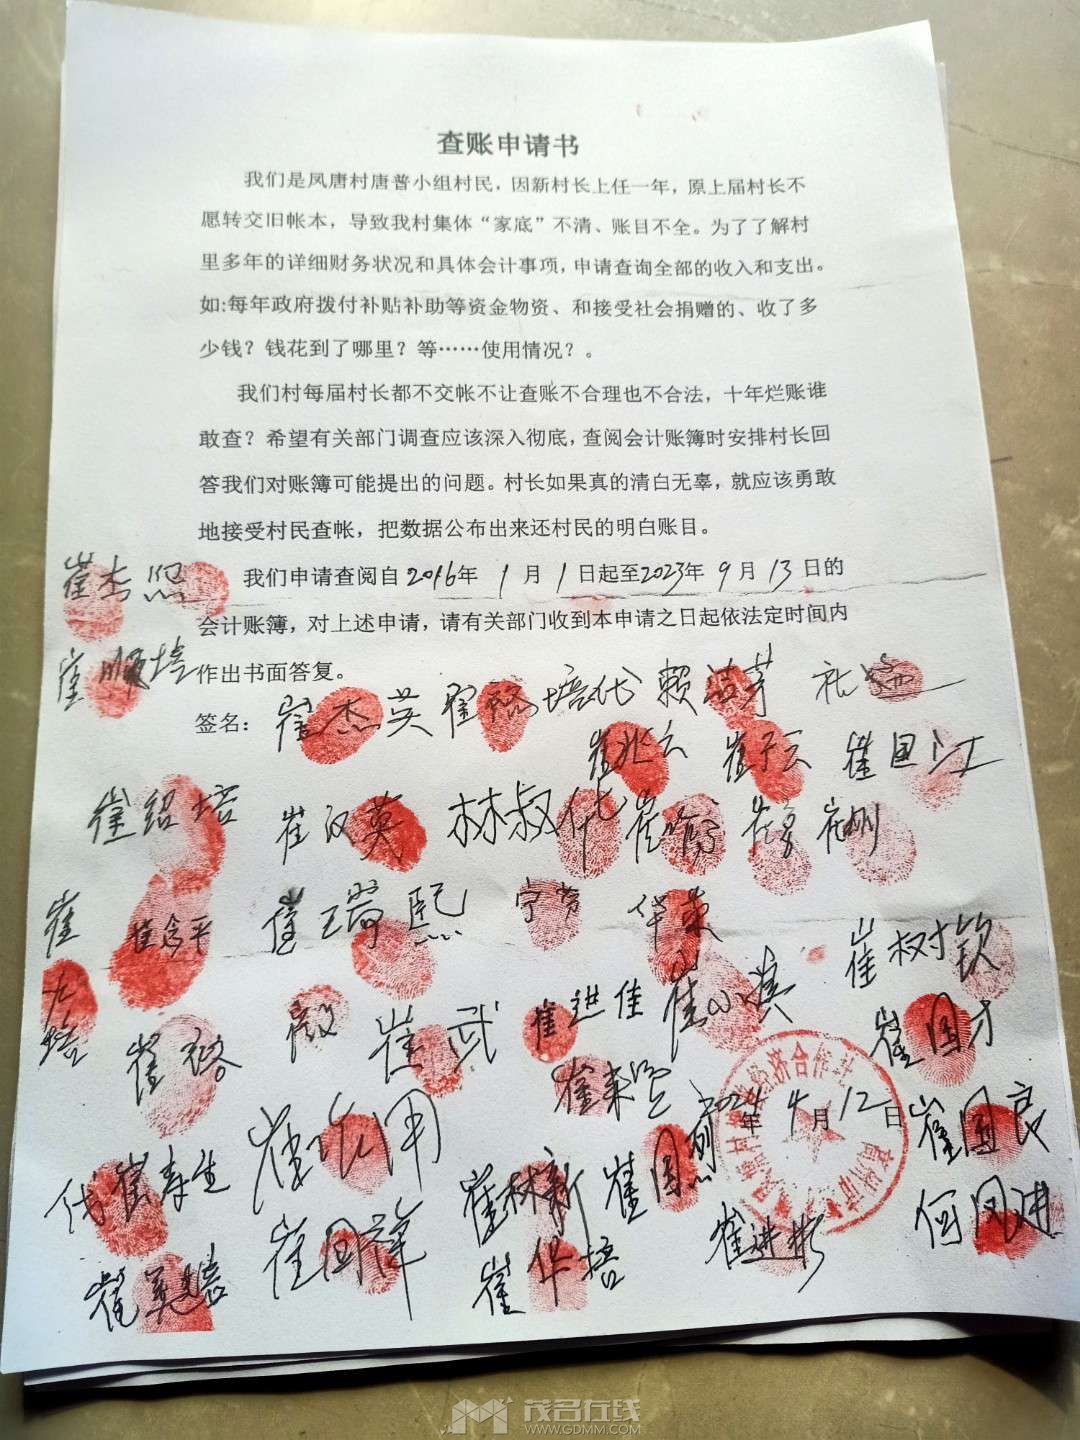 查账申请书
我们是凤唐村唐普小组村民，因新村长上任一年，原上届村长不
愿转交旧帐本，导致我村集体“家底”不清、账目不全。为了了解村
里多年的详细财务状况和具体会计事项，申请查询全部的收入和支出。
如:每年政府拨付补贴补助等资金物资、和接受社会捐赠的、收了多
少钱？钱花到了哪里？等……使用情况？。
我们村每届村长都不交帐不让查账不合理也不合法，十年烂账谁
敢查？希望有关部门调查应该深入彻底，查阅会计账簿时安排村长回
答我们对账簿可能提出的问题。村长如果真的清白无辜，就应该勇敢
地接受村民查帐，把数据公布出来还村民的明白账目。
崔杰熙
我们申请查阅自2016年1月1日起至2023年9月13日的
会计账簿，对上述申请，请有关部门收到本申请之日起依法定时间内
崔顺培
作出书面答复。
签名：
崔杰英
崔兆云 崔子云 崔国江
崔绍培 崔汉英 林叔
崔念平 崔瑞熙 华荣 崔树钦
崔九培
崔武 崔进佳 崔国才
崔荣
经济合作社
2024年4月12日 崔国良
代崔寿生 崔林新 崔国烈
崔国祥 崔华培 崔进彬 何凤进
崔英
茂名在线
WWW.GDMM.COM